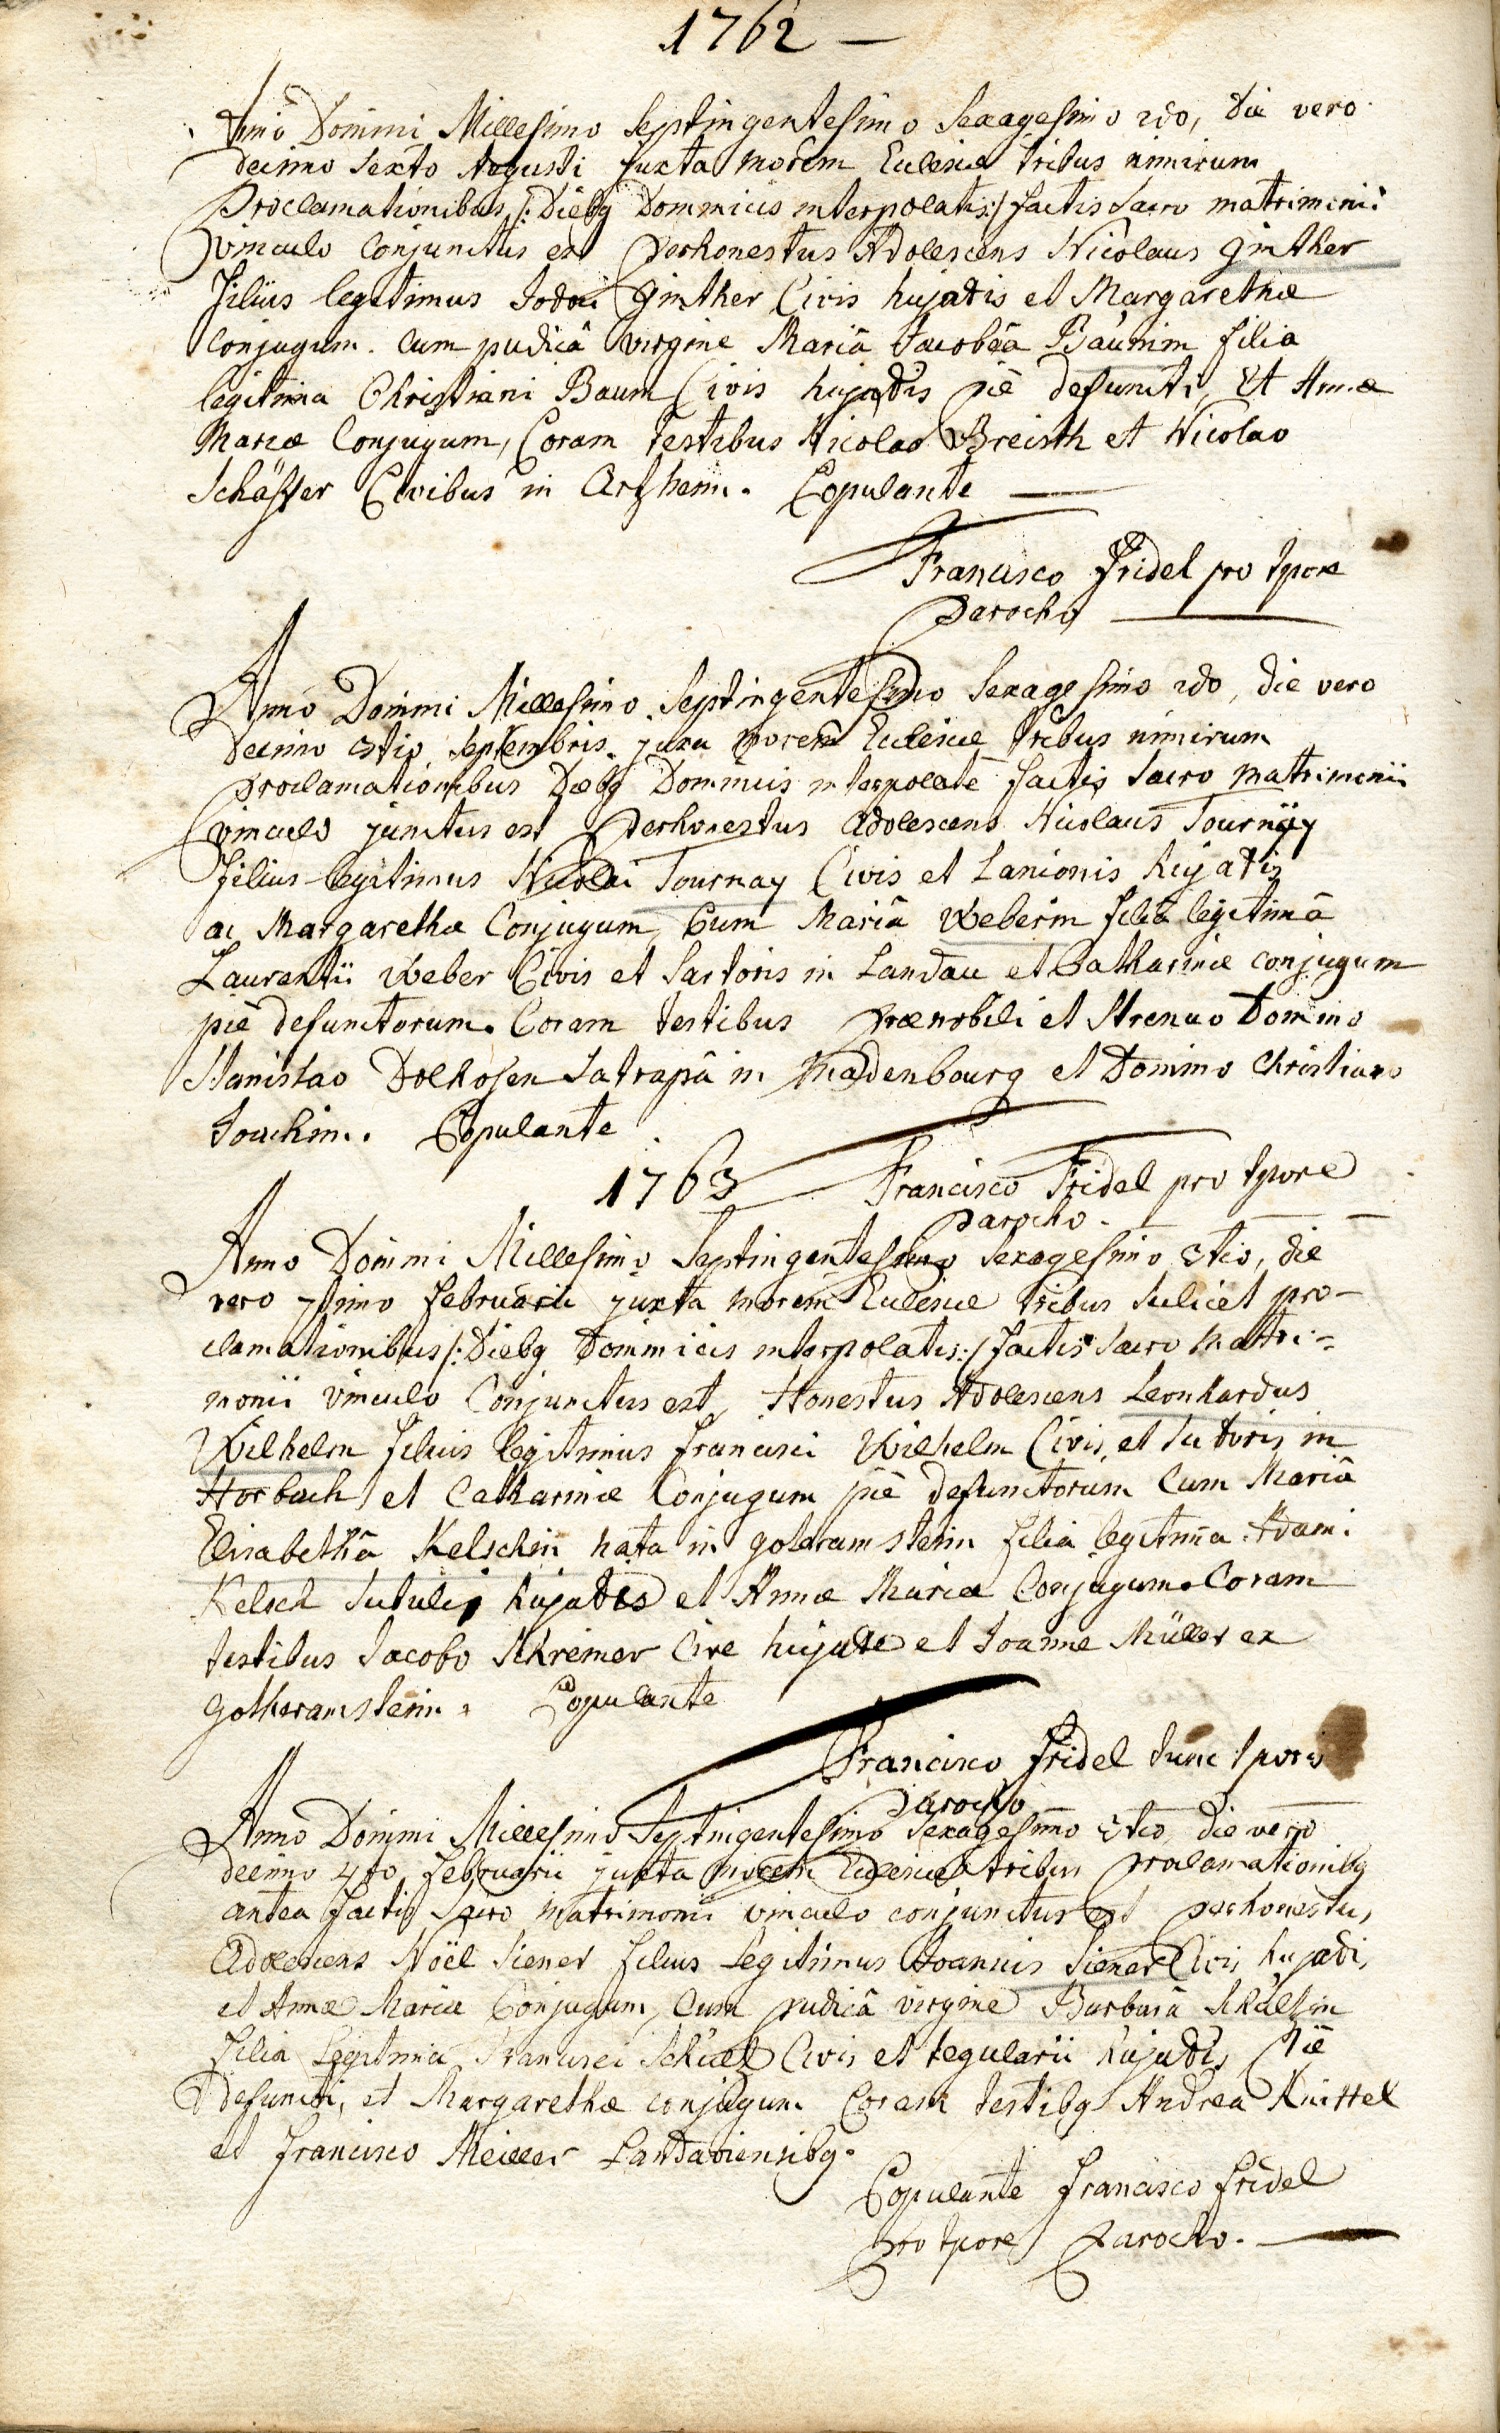 1762 —
Anno Domini Millesimo Septingentesimo Sexagesimo 2do, die vero
decimo sexto Augusti juxta morem Eclesiæ tribus nimirum
Proclamationibus /: Diebq Dominicis interpolatis :/ factis sacro matrimonii
vinculo conjunctus est perhonestus Adolescens Nicolaus ginther
Filius legitimus Jodoci ginther Civis hujatis et Margarethæ
conjugum. cum pudicâ virgine Mariâ Jacobeâ Baumin filia
legitima Christiani Baum Civis hujatis piè defuncti, Et Annæ
Mariæ Conjugum, Coram testibus Nicolao Breisth et Nicolao
Schäffer Civibus in Arzheim. Copulante —
Francisco Fridel pro tpore
Parocho —
Anno Domini Millesimo Septingentesimo Sexagesimo 2do, die vero
Decimo 3tio Septembris juxa morem Eclesiæ tribus nimirum
proclamationibus Diebq Dominicis interpolatè factis sacro matrimonii
vinculo junctus est perhonestus Adolescens Nicolaus Tournay
filius legitimus Nicolai Tournay Civis et Lanionis hujatis
ac Margarethæ Conjugum, Cum Mariâ Weberin filiâ legitimâ
Laurentii Weber Civis et Sartoris in Landau et Catharinæ conjugum
piè defunctorum. Coram testibus prænobili et Strenuo Domino
Stanislao Dolhosen Satrapâ in Madenbourg et Domino Christiano
Joachim. Copulante
1763 Francisco Fridel pro tpore
Parocho. —
Anno Domini Millesimo Septingentesimo Sexagesimo 3tio, die
vero 7timo februarii juxta morem Eclesiæ tribus scilicet pro-
clamationibus /: Diebq Dominicis interpolatis :/ factis sacro matri-
monii vinculo Conjunctus est, Honestus Adolescens Leonhardus
Wilhelm filius legitimus francisci Wilhelm Civis et Sutoris in
Horbach et Catharinæ Conjugum piè defunctorum Cum Mariâ
Elisabethâ Kelschin nata in goteramstein filia legitima Adami
Kelsch hujatis et Annæ Mariæ Conjugum. Coram
testibus Jacobo Schremer Cive hujate et Joanne Müller ex
gotheramstein. Copulante
Francisco Fridel tunc tporis
Parocho
Anno Domini Millesimo Septingentesimo Sexagesimo 3tio, die vero
decimo 4to februarii juxta morem Eclesiæ tribus proclamationibq
antea factis sacro matrimonii vinculo conjunctus est perhonestus
Adolescens Noël Siener filius legitimus Joannis Siener Civis hujatis
et Annæ Mariæ Conjugum, Cum pudicâ virgine Barbarâ
filia legitima Francisci Civis et tegularii hujatis piè
Defuncti, et Margarethæ conjugum Coram testibq Andrea Knittel
et francisco Meiller Landaviensibq.
Copulante Francisco Fridel
pro tpore Parocho. —